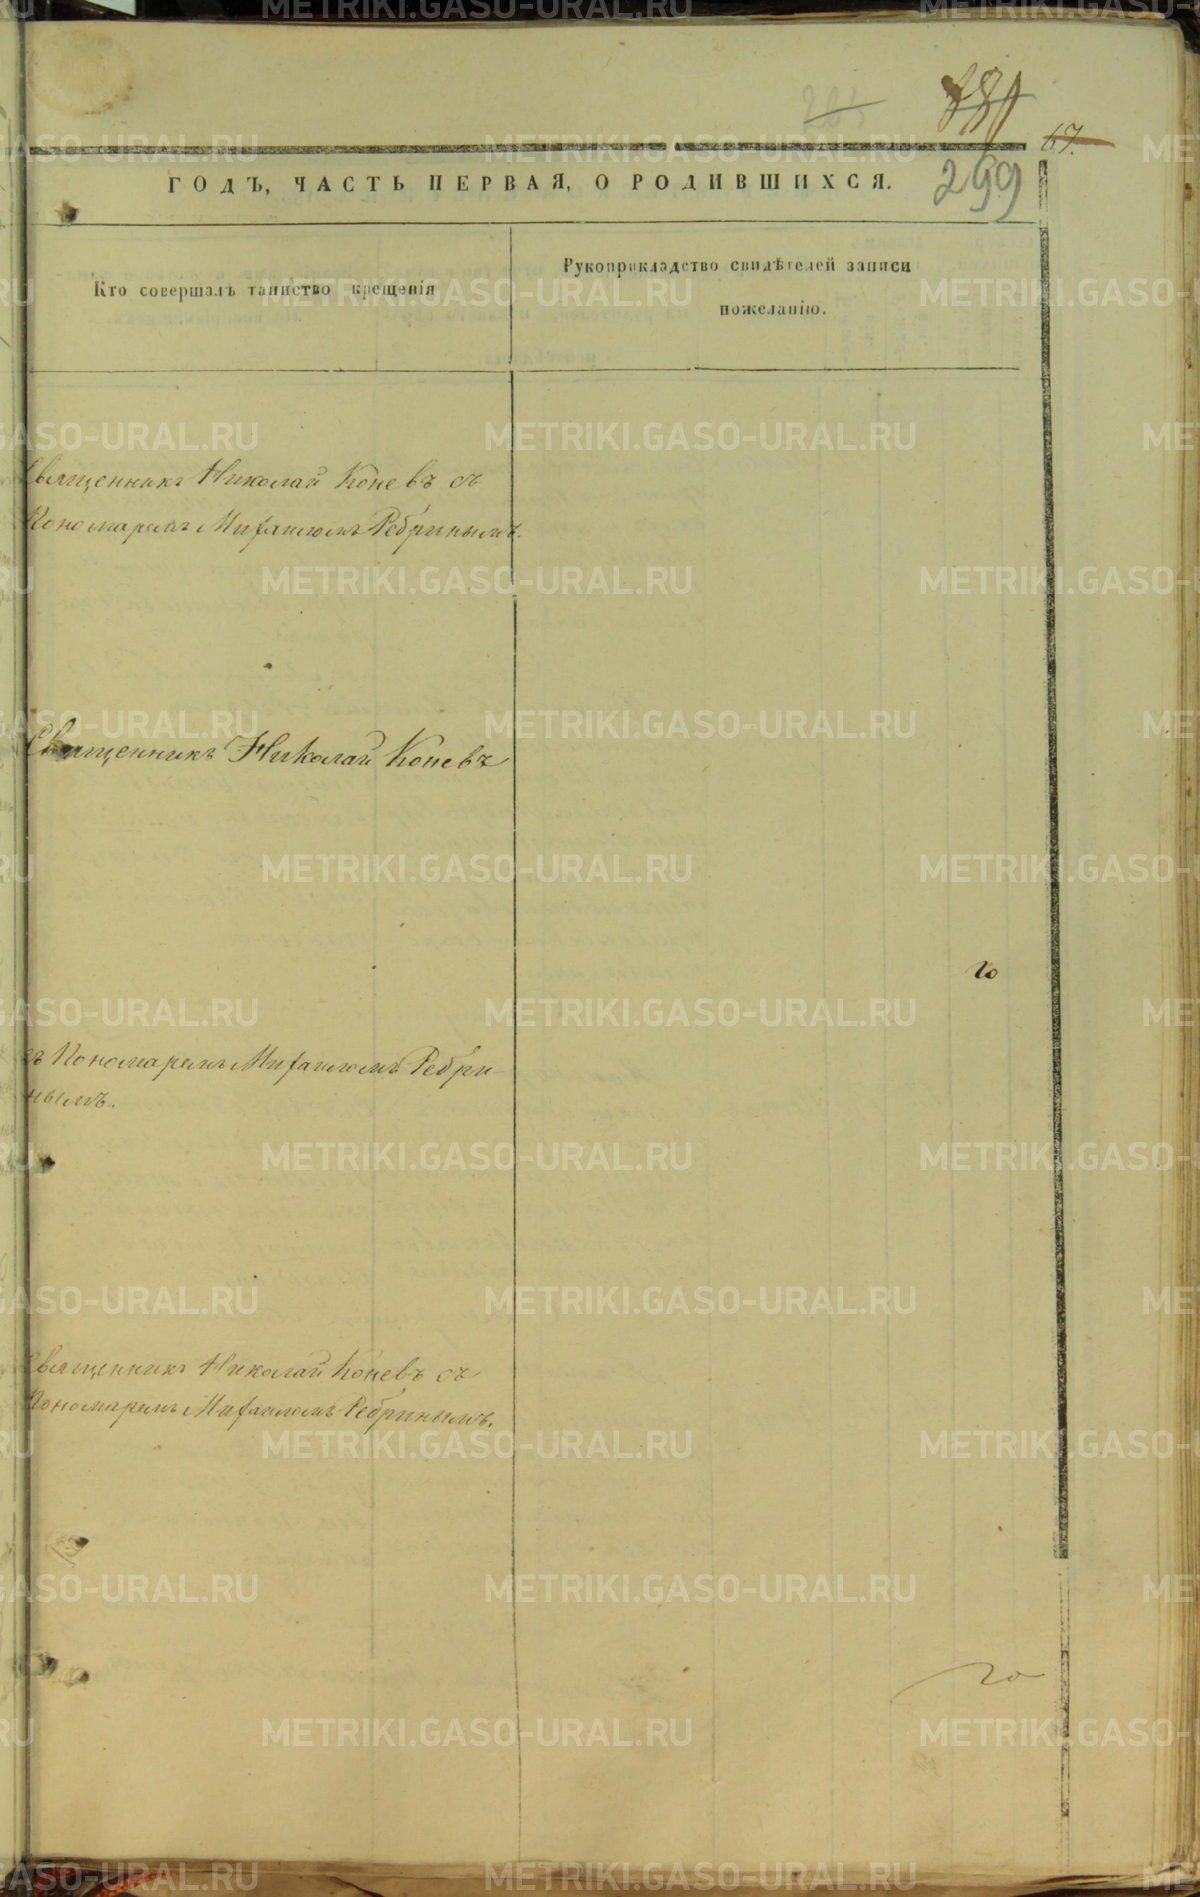 67.
299
ГОДЪ, ЧАСТЬ ПЕРВАЯ, О РОДИВШИХСЯ.
Кто совершалъ таинство крещенія
Рукоприкладство свидѣтелей записи
пожеланію.
Священникъ Николай Коневъ съ
Пономаремъ Михаиломъ Ребринымъ.
Священникъ Николай Коневъ
съ Пономаремъ Михаиломъ Ребри
нымъ.
Священникъ Николай Коневъ съ
Пономаремъ Михаиломъ Ребринымъ.
METRIKI.GASO-URAL.RU